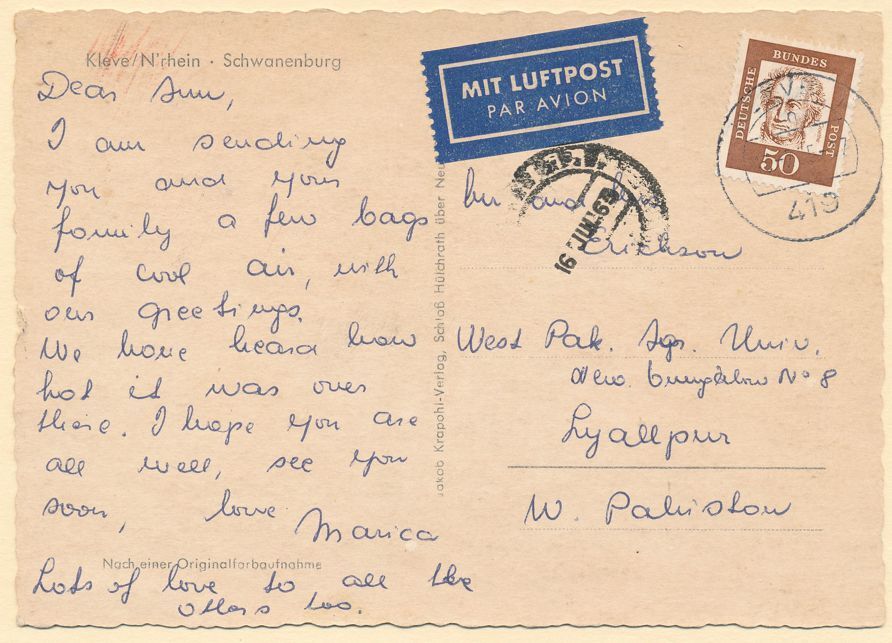 Kleve/N'rhein · Schwanenburg
Dear Ann,
I am sending
you and your
family a few bags
of cool air, with
our greetings.
We have heard how
hot it was over
there. I hope you are
all well, see you
soon, love
Marica
Nach einer Originalfarbaufnahme
Lots of love to all the
others too.
Jakob Krapohl-Verlag, Schloß Hülchrath über
MIT LUFTPOST
PAR AVION
DEUTSCHE
BUNDES
POST
50
419
16 JUL 63
and
Erickson
West Pak. Agr. Univ.
New Bungalow No 8
Lyallpur
W. Pakistan